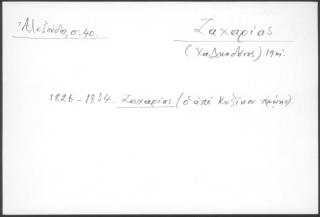 Ἀλεξούδη, σ. 40.
Ζαχαρίας
(Χαλκηδόνος) 19 αἰ.
1826 - 1834. Ζαχαρίας (ὁ ἀπὸ Κυζίκου πρώην).